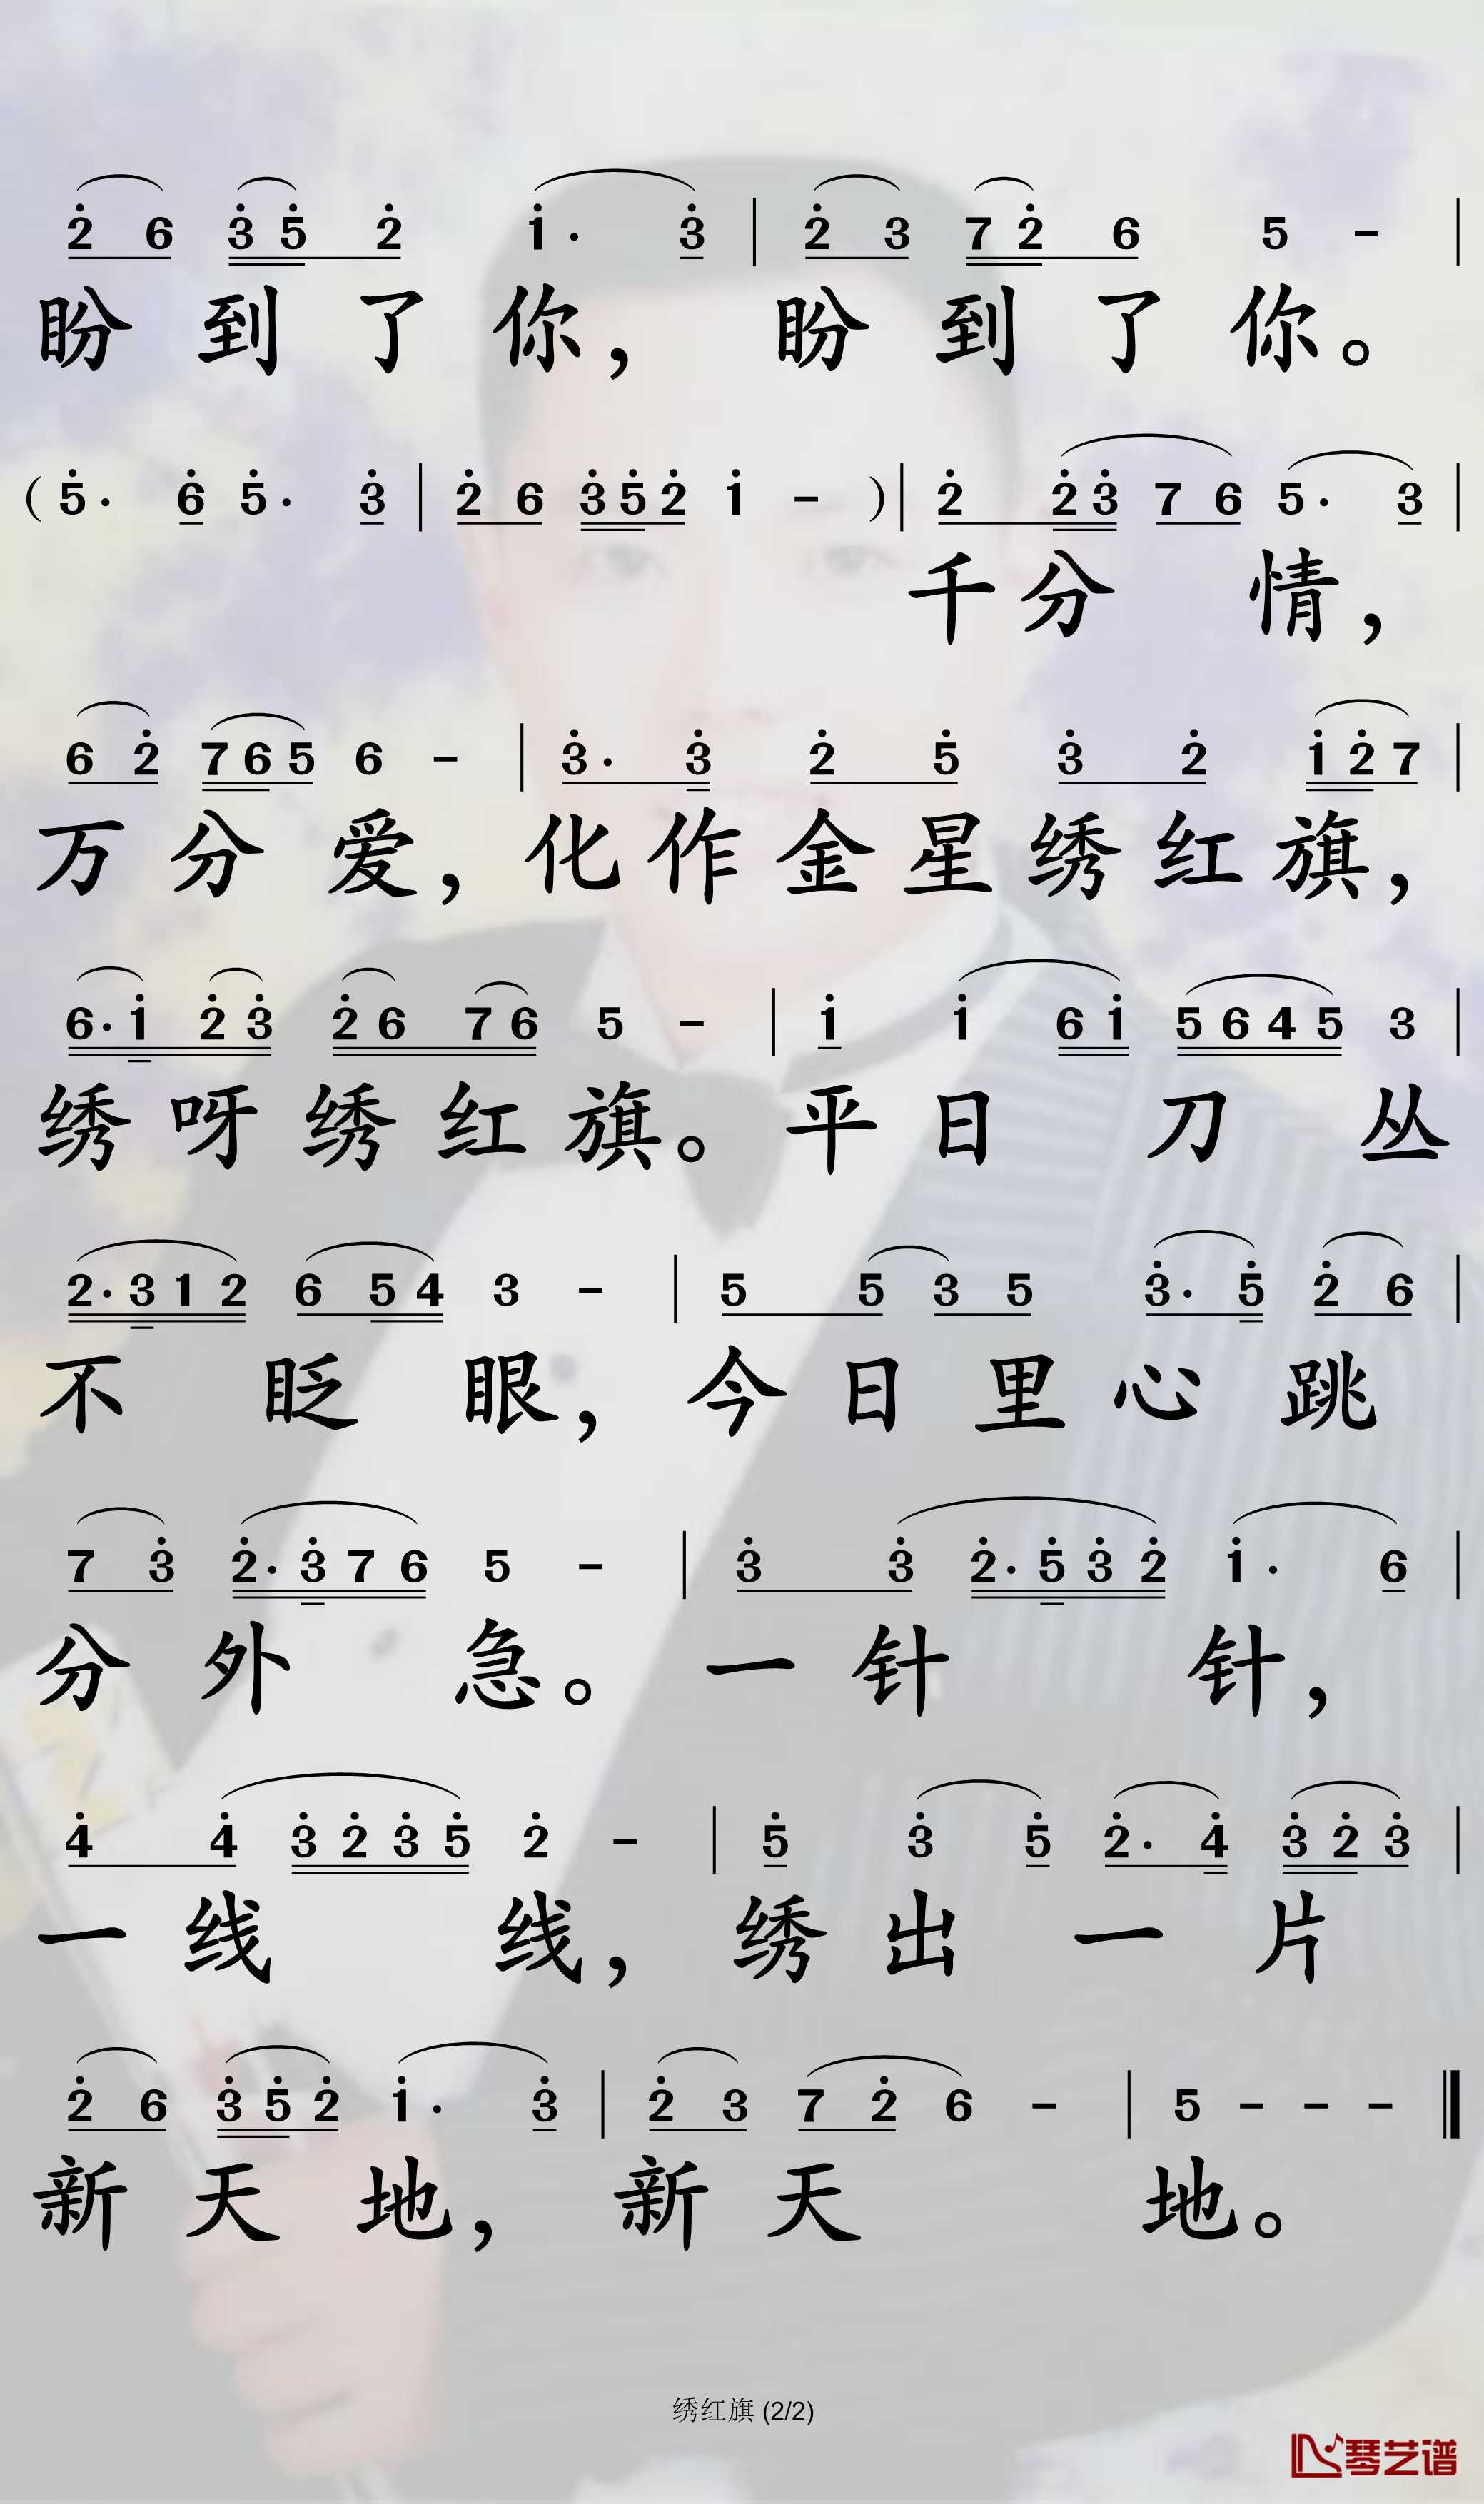 2̇ 6 3̇ 5̇ 2̇ 1̇ · 3̇ | 2̇ 3 7 2̇ 6 5 – |
盼到了你，盼到了你。
( 5̇ · 6̇ 5̇ · 3̇ | 2̇ 6 3̇ 5̇ 2̇ 1̇ – ) | 2̇ 2̇ 3̇ 7 6 5 · 3 |
千分情，
6 2̇ 7 6 5 6 – | 3̇ · 3̇ 2̇ 5̇ 3̇ 2̇ 1̇ 2̇ 7 |
万分爱，化作金星绣红旗，
6 · 1̇ 2̇ 3̇ 2̇ 6 7 6 5 – | 1̇ 1̇ 6 1̇ 5 6 4 5 3 |
绣呀绣红旗。平日刀丛
2 · 3 1 2 6 5 4 3 – | 5 5 3 5 3̇ · 5̇ 2̇ 6 |
不眨眼，今日里心跳
7 3̇ 2̇ · 3̇ 7 6 5 – | 3̇ 3̇ 2̇ · 5̇ 3̇ 2̇ 1̇ · 6 |
分外急。一针针，
4̇ 4̇ 3̇ 2̇ 3̇ 5̇ 2̇ – | 5̇ 3̇ 5̇ 2̇ · 4̇ 3̇ 2̇ 3̇ |
一线线，绣出一片
2̇ 6 3̇ 5̇ 2̇ 1̇ · 3̇ | 2̇ 3 7 2̇ 6 – | 5 – – – ‖
新天地，新天地。
绣红旗 (2/2)
琴艺谱